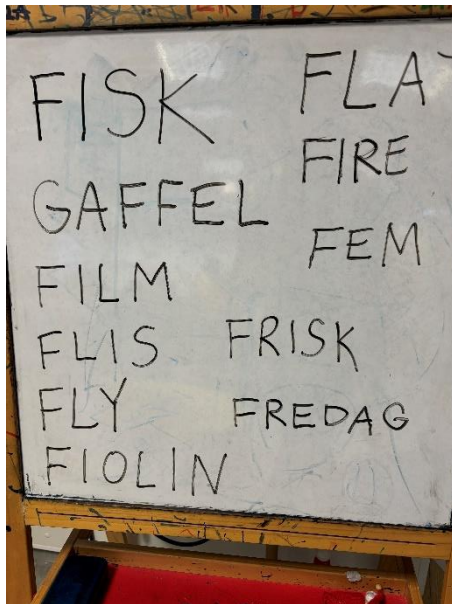 FISK
GAFFEL
FILM
FLIS
FLY
FIOLIN
FIRE
FEM
FRISK
FREDAG